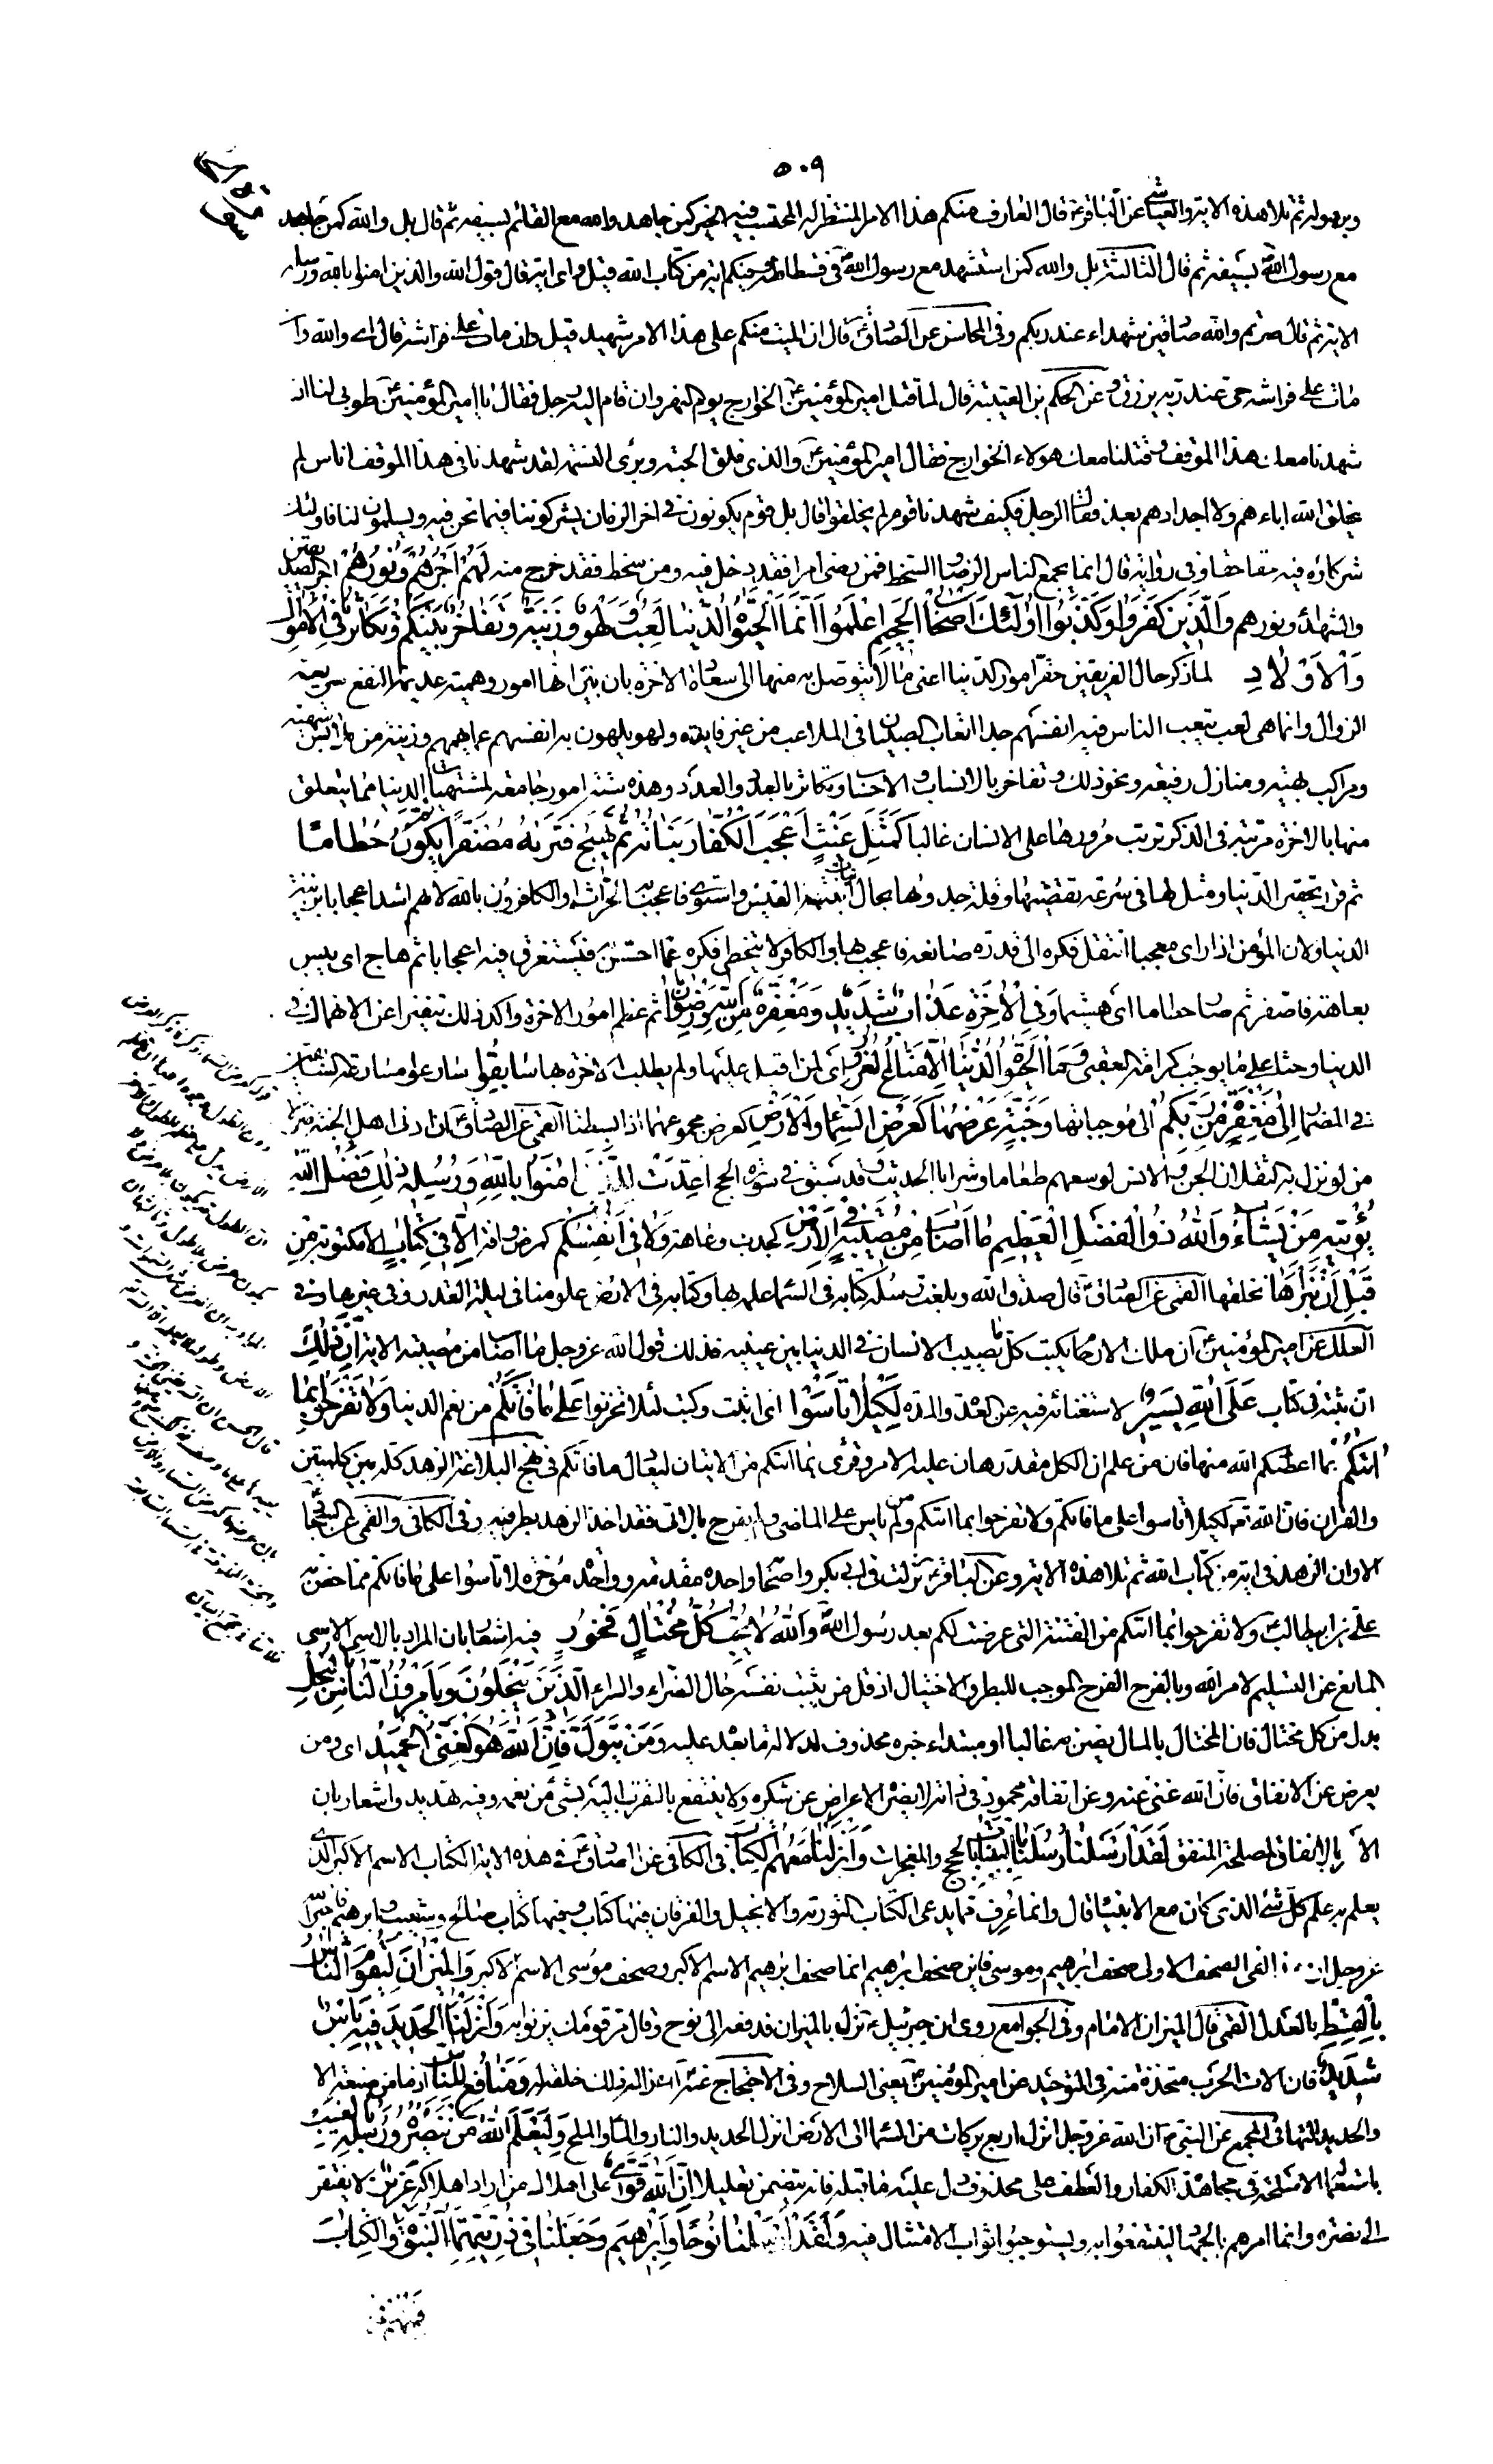 ٥٠٩
وبرسوله ثم تلا هذه الآية والعياشي عن الباقر ع قال العارف منكم هذا الامر المنتظر له المحتسب فيه الخير كمن جاهد والله مع القائم بسيفه ثم قال بل والله كمن جاهد
مع رسول الله ص بسيفه ثم قال الثالثة بل والله كمن استشهد مع رسول الله ص في فسطاطه وفيكم آية من كتاب الله قيل واي آية قال قول الله والذين امنوا بالله ورسله
الآية ثم قال صرتم والله صادقين شهداء عند ربكم وفي المحاسن عن الصادق ع قال ان الميت منكم على هذا الامر شهيد قيل وان مات على فراشه قال اي والله وان
مات على فراشه حي عند ربه يرزق وعن الحكم بن العتيبة قال لما قتل امير المؤمنين ع الخوارج يوم النهروان قام اليه رجل فقال يا امير المؤمنين ع طوبى لنا اذ
شهدنا معك هذا الموقف وقتلنا معك هولاء الخوارج فقال امير المؤمنين ع والذي فلق الحبة وبرئ النسمة لقد شهدنا في هذا الموقف اناس لم
يخلق الله اباءهم ولا اجدادهم بعد فقال الرجل فكيف شهدنا قوم لم يخلقوا قال بل قوم يكونون في اخر الزمان يشركوننا فيما نحن فيه ويسلمون لنا فاولئك
شركاؤه فيه حقا حقا وفي رواية قال انما يجمع الناس الرضا والسخط فمن رضي امرا فقد دخل فيه ومن سخط فقد خرج منه لَهُمْ اَجْرُهُمْ وَنُورُهُمْ اجر الصديقين
والشهداء ونورهم وَالَّذِينَ كَفَرُوا وَكَذَّبُوا اُولٰئِكَ اَصْحَابُ الْجَحِيمِ اِعْلَمُوا اَنَّمَا الْحَيٰوةُ الدُّنْيَا لَعِبٌ وَلَهْوٌ وَزِينَةٌ وَتَفَاخُرٌ بَيْنَكُمْ وَتَكَاثُرٌ فِي الْاَمْوَالِ
وَالْاَوْلَادِ لما ذكر حال الفريقين حقر امور الدنيا اعني ما لا يتوصل به منها الى سعادة الاخرة بان بين انها امور وهمية عديمة النفع سريعة
الزوال وانما هي لعب يتعب الناس فيه انفسهم جدا اتعاب الصبيان في الملاعب من غير فايدة ولهو يلهون به انفسهم عما يهمهم وزينة من ملابس شهية
ومراكب بهية ومنازل رفيعة ونحو ذلك وتفاخر بالانساب والاحساب وتكاثر بالعدد والعدد وهذه ستة امور جامعة لمشتهيات الدنيا مما يتعلق
منها بالاخرة مرتبة في الذكر ترتب مرورها على الانسان غالبا كَمَثَلِ غَيْثٍ اَعْجَبَ الْكُفَّارَ نَبَاتُهُ ثُمَّ يَهِيجُ فَتَرٰيهُ مُصْفَرًّا ثُمَّ يَكُونُ حُطَامًا
ثم قرر تحقير الدنيا ومثل لها في سرعة تقضيها وقلة جدواها بحال نبات انبته الغيث واستوى فاعجب به الحراث او الكافرون بالله لانهم اشد اعجابا بزينة
الدنيا ولان المؤمن اذا راى معجبا انتقل فكره الى قدرة صانعه فاعجب بها والكافر لا يتخطى فكره عما احس به فيستغرق فيه اعجابا ثم هاج اي يبس
بعاهة فاصفر ثم صار حطاما اي هشيما وَفِي الْاٰخِرَةِ عَذَابٌ شَدِيدٌ وَمَغْفِرَةٌ مِنَ اللهِ وَرِضْوَانٌ ثم عظم امور الاخرة واكد ذلك تنفيرا عن الانهماك في
الدنيا وحثا على ما يوجب كرامة العقبى وَمَا الْحَيٰوةُ الدُّنْيَا اِلَّا مَتَاعُ الْغُرُورِ اي لمن اقبل عليها ولم يطلب الاخرة بها سَابِقُوا سارعوا مسارعة السابقين
في المضمار اِلىٰ مَغْفِرَةٍ مِنْ رَبِّكُمْ الى موجباتها وَجَنَّةٍ عَرْضُهَا كَعَرْضِ السَّمَاءِ وَالْاَرْضِ كعرض مجموعهما اذا بسطتا القمي عن الصادق ع ان ادنى اهل الجنة منزلا
من لو نزل به الثقلان الجن والانس لوسعهم طعاما وشرابا الحديث وقد سبق في سورة الحج اُعِدَّتْ لِلَّذِينَ اٰمَنُوا بِاللهِ وَرُسُلِهِ ذٰلِكَ فَضْلُ اللهِ
يُؤْتِيهِ مَنْ يَشَاءُ وَاللهُ ذُو الْفَضْلِ الْعَظِيمِ مَا اَصَابَ مِنْ مُصِيبَةٍ فِي الْاَرْضِ كجدب وعاهة وَلَا فِي اَنْفُسِكُمْ كمرض وافة اِلَّا فِي كِتَابٍ الا مكتوبة مِنْ
قَبْلِ اَنْ نَبْرَاَهَا نخلقها القمي عن الصادق ع قال صدق الله وبلغت رسله كتابه في السماء علمه بها وكتابه في الارض علومنا في ليلة القدر وفي غيرها وفي
العلل عن امير المؤمنين ع ان ملك الارحام يكتب كل ما يصيب الانسان في الدنيا بين عينيه فذلك قول الله عز وجل ما اصاب من مصيبة الاية اِنَّ ذٰلِكَ
ان ثبته في كتاب عَلَى اللهِ يَسِيرٌ لاستغنائه فيه عن العدة والمدة لِكَيْلَا تَاْسَوْا اي اثبت وكتب لئلا تحزنوا عَلىٰ مَا فَاتَكُمْ من نعم الدنيا وَلَا تَفْرَحُوا بِمَا
اٰتٰيكُمْ بما اعطيكم الله منها فان من علم ان الكل مقدر هان عليه الامر وقرئ بما اتيكم من الاتيان ليعادل ما فاتكم في نهج البلاغة الزهد كله بين كلمتين
من القران قال الله تع لكيلا تاسوا على ما فاتكم ولا تفرحوا بما اتيكم ومن لم ياس على الماضي ولم يفرح بالاتي فقد اخذ الزهد بطرفيه وفي الكافي والقمي عن السجاد ع
الا وان الزهد في اية من كتاب الله ثم تلا هذه الاية وعن الباقر ع نزلت في ابي بكر واصحابه واحدة مقدمة وواحدة مؤخرة لا تاسوا على ما فاتكم مما خص به
علي بن ابي طالب ع ولا تفرحوا بما اتيكم من الفتنة التي عرضت لكم بعد رسول الله ص وَاللهُ لَا يُحِبُّ كُلَّ مُخْتَالٍ فَخُورٍ فيه اشعار بان المراد بالاسى الاسى
المانع عن التسليم لامر الله وبالفرح الفرح الموجب للبطر والاختيال اذ قل من يثبت نفسه حال الضراء والسراء اَلَّذِينَ يَبْخَلُونَ وَيَاْمُرُونَ النَّاسَ بِالْبُخْلِ
بدل من كل مختال فان المختال بالمال يضن به غالبا او مبتداء خبره محذوف لدلالة ما بعده عليه وَمَنْ يَتَوَلَّ فَاِنَّ اللهَ هُوَ الْغَنِيُّ الْحَمِيدُ اي ومن
يعرض عن الانفاق فان الله غني عنه وعن انفاقه محمود في ذاته لا يضره الاعراض عن شكره ولا ينتفع بالتقرب اليه بشئ من نعمه وفيه تهديد واشعار بان
الامر بالانفاق لمصلحة المنفق لَقَدْ اَرْسَلْنَا رُسُلَنَا بِالْبَيِّنَاتِ بالحجج والمعجزات وَاَنْزَلْنَا مَعَهُمُ الْكِتَابَ في الكافي عن الصادق ع في هذه الاية الكتاب الاسم الاكبر الذي
يعلم به علم كل شئ الذي كان مع الانبياء قال وانما عرف مما يدعى الكتاب التورية والانجيل والفرقان فيها كتاب نوح وفيها كتاب صالح وشعيب وابرهيم فاخبر الله
عز وجل ان هذا لفي الصحف الاولى صحف ابرهيم وموسى فاين صحف ابرهيم انما صحف ابرهيم الاسم الاكبر وصحف موسى الاسم الاكبر وَالْمِيزَانَ لِيَقُومَ النَّاسُ
بِالْقِسْطِ بالعدل القمي قال الميزان الامام وفي الجوامع روي ان جبرئيل ع نزل بالميزان فدفعه الى نوح وقال مر قومك يزنوا به وَاَنْزَلْنَا الْحَدِيدَ فِيهِ بَاْسٌ
شَدِيدٌ فان الات الحرب متخذة منه في التوحيد عن امير المؤمنين ع يعني السلاح وفي الاحتجاج عنه ع انزاله ذلك خلقه له وَمَنَافِعُ لِلنَّاسِ اذ ما من صنعة الا
والحديد التها في المجمع عن النبي ص ان الله عز وجل انزل اربع بركات من السماء الى الارض انزل الحديد والنار والماء والملح وَلِيَعْلَمَ اللهُ مَنْ يَنْصُرُهُ وَرُسُلَهُ بِالْغَيْبِ
باستعمال الاسلحة في مجاهدة الكفار والعطف على محذوف دل عليه ما قبله فانه يتضمن تعليلا اِنَّ اللهَ قَوِيٌّ على اهلاك من اراد اهلاكه عَزِيزٌ لا يفتقر
الى نصرة وانما امرهم بالجهاد لينتفعوا به ويستوجبوا ثواب الامتثال فيه وَلَقَدْ اَرْسَلْنَا نُوحًا وَاِبْرٰهِيمَ وَجَعَلْنَا فِي ذُرِّيَّتِهِمَا النُّبُوَّةَ وَالْكِتَابَ
فمنهم